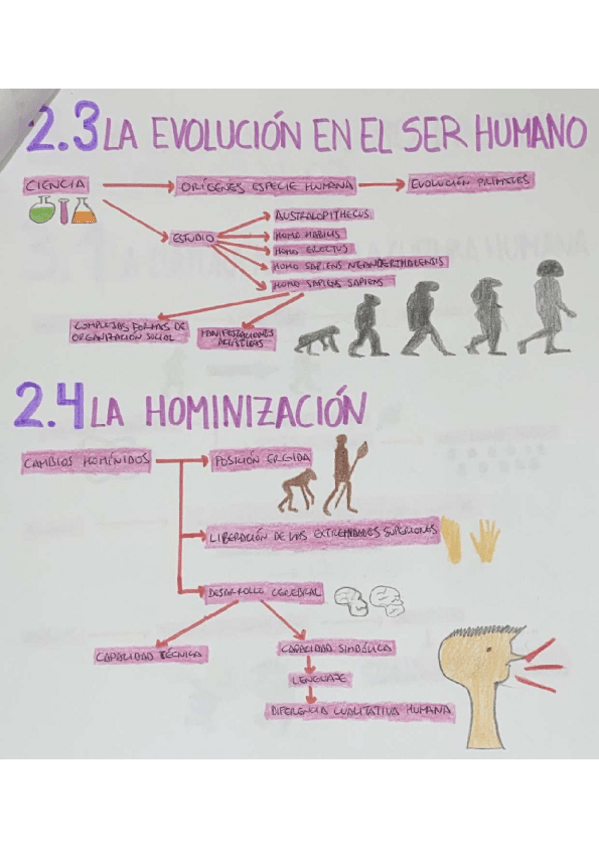 2.3 LA EVOLUCIÓN EN EL SER HUMANO
CIENCIA
ORÍGENES ESPECIE HUMANA
EVOLUCIÓN PRIMATES
ESTUDIO
AUSTRALOPITHECUS
HOMO HABILIS
HOMO ERECTUS
HOMO SAPIENS NEANDERTHALENSIS
HOMO SAPIENS SAPIENS
COMPLEJAS FORMAS DE
ORGANIZACIÓN SOCIAL
MANIFESTACIONES
ARTÍSTICAS
2.4 LA HOMINIZACIÓN
CAMBIOS HOMÍNIDOS
POSICIÓN ERGIDA
LIBERACIÓN DE LAS EXTREMIDADES SUPERIORES
DESARROLLO CEREBRAL
CAPACIDAD TÉCNICA
CAPACIDAD SIMBÓLICA
LENGUAJE
DIFERENCIA CUALITATIVA HUMANA